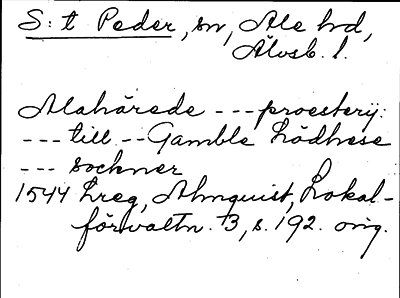 S:t Peder, sn, Ale hd,
Älvsb. l.
Alahärede --- proestery:
--- till -- Gamble Lödhese
--- sockner
1544 Lreg, Almquist, Lokal-
förvaltn. 3, s. 192. orig.